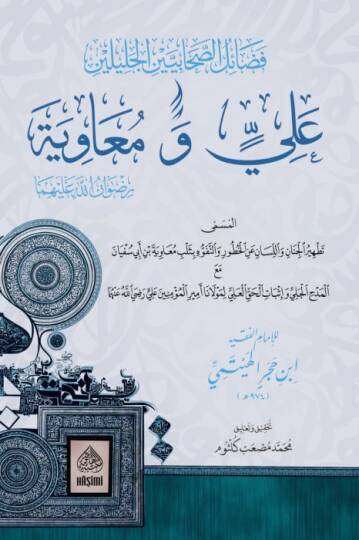 فَضَائِلُ الصَّحَابِيَّيْنِ الْجَلِيلَيْنِ
عَلِيٍّ وَ مُعَاوِيَةَ
رِضْوَانُ اللّٰهِ عَلَيْهِمَا
المُسَمَّى
تَطْهِيرُ الْجِنَانِ وَاللِّسَانِ عَنِ الْخُطُورِ وَالتَّفَوُّهِ بِثَلْبِ مُعَاوِيَةَ بْنِ أَبِي سُفْيَانَ
مَعَ
الْمَدْحِ الْجَلِيِّ وَإِثْبَاتِ الْحَقِّ الْعَلِيِّ لِمَوْلَانَا أَمِيرِ الْمُؤْمِنِينَ عَلِيٍّ رَضِيَ اللّٰهُ عَنْهُمَا
لِلإِمَامِ الفَقِيهِ
ابْنِ حَجَرٍ الْهَيْتَمِيِّ
(٩٧٤ هـ)
تحقيق وتعليق
مُحَمَّد مُصْعَب كُلْثُوم
HÂŞİMİ